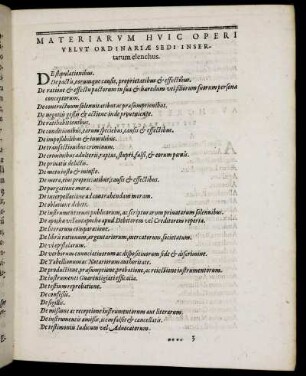 MATERIARVM HVIC OPERI
VELVT ORDINARIÆ SEDI INSER-
tarum elenchus.
DE stipulationibus.
De pactis, eorumque causis, proprietatibus & effectibus.
De ratione & effectu pactorum in sua & haredum vel filiorum suorum persona
conceptorum.
De contractuum solennitatibus ac præsumptionibus.
De negotiis gestis & actione inde proueniente.
De ratihabitionibus.
De conditionibus, earum speciebus, causis & effectibus.
De impossibilibus & inutilibus.
De transactionibus criminum.
De criminibus adulterii, raptus, stupri, falsi, & earum pœnis.
De priuatis delictis.
De manifesto & notorio.
De mora, eius proprietatibus, causis & effectibus.
De purgatione moræ.
De interpellatione ad contrahendam moram.
De oblatione debiti.
De instrumentorum publicorum, ac scripturarum priuatarum solennibus.
De apocha vel antapocha apud Debitorem vel Creditorem reperta.
De literarum comparatione.
De libris rationum, argentariorum, mercatorum, societatum.
De
De verborum connotatiuorum ac dispositiuorum fide & discrimine.
De Tabellionum ac Notariorum authoritate.
De productione, præsumptione, probatione, ac reiectione instrumentorum.
De instrumentis Guarentigiatis efficacia.
De testium reprobatione.
De confessis.
De sigillis.
De missione ac receptione instrumentorum aut literarum.
De instrumentis amissis, ac corruptis & cancellatis.
De testimoniis Iudicum vel Aduocatorum.
5